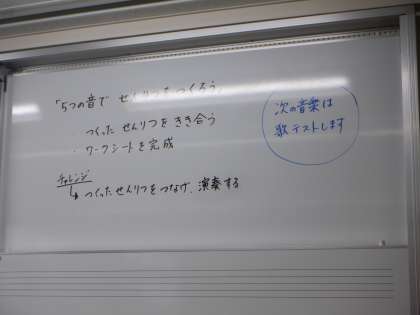 「5つの音で せんりつをつくろう」
つくった せんりつを きき合う
・ワークシートを完成
チャレンジ
↳ つくったせんりつをつなげ、演奏する
次の音楽は
歌テストします